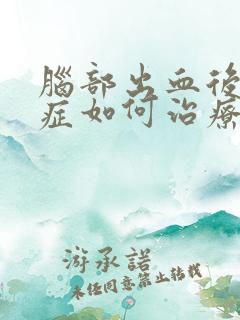 腦部出血後
症如何治療
游承諾
未任同意禁止轉載